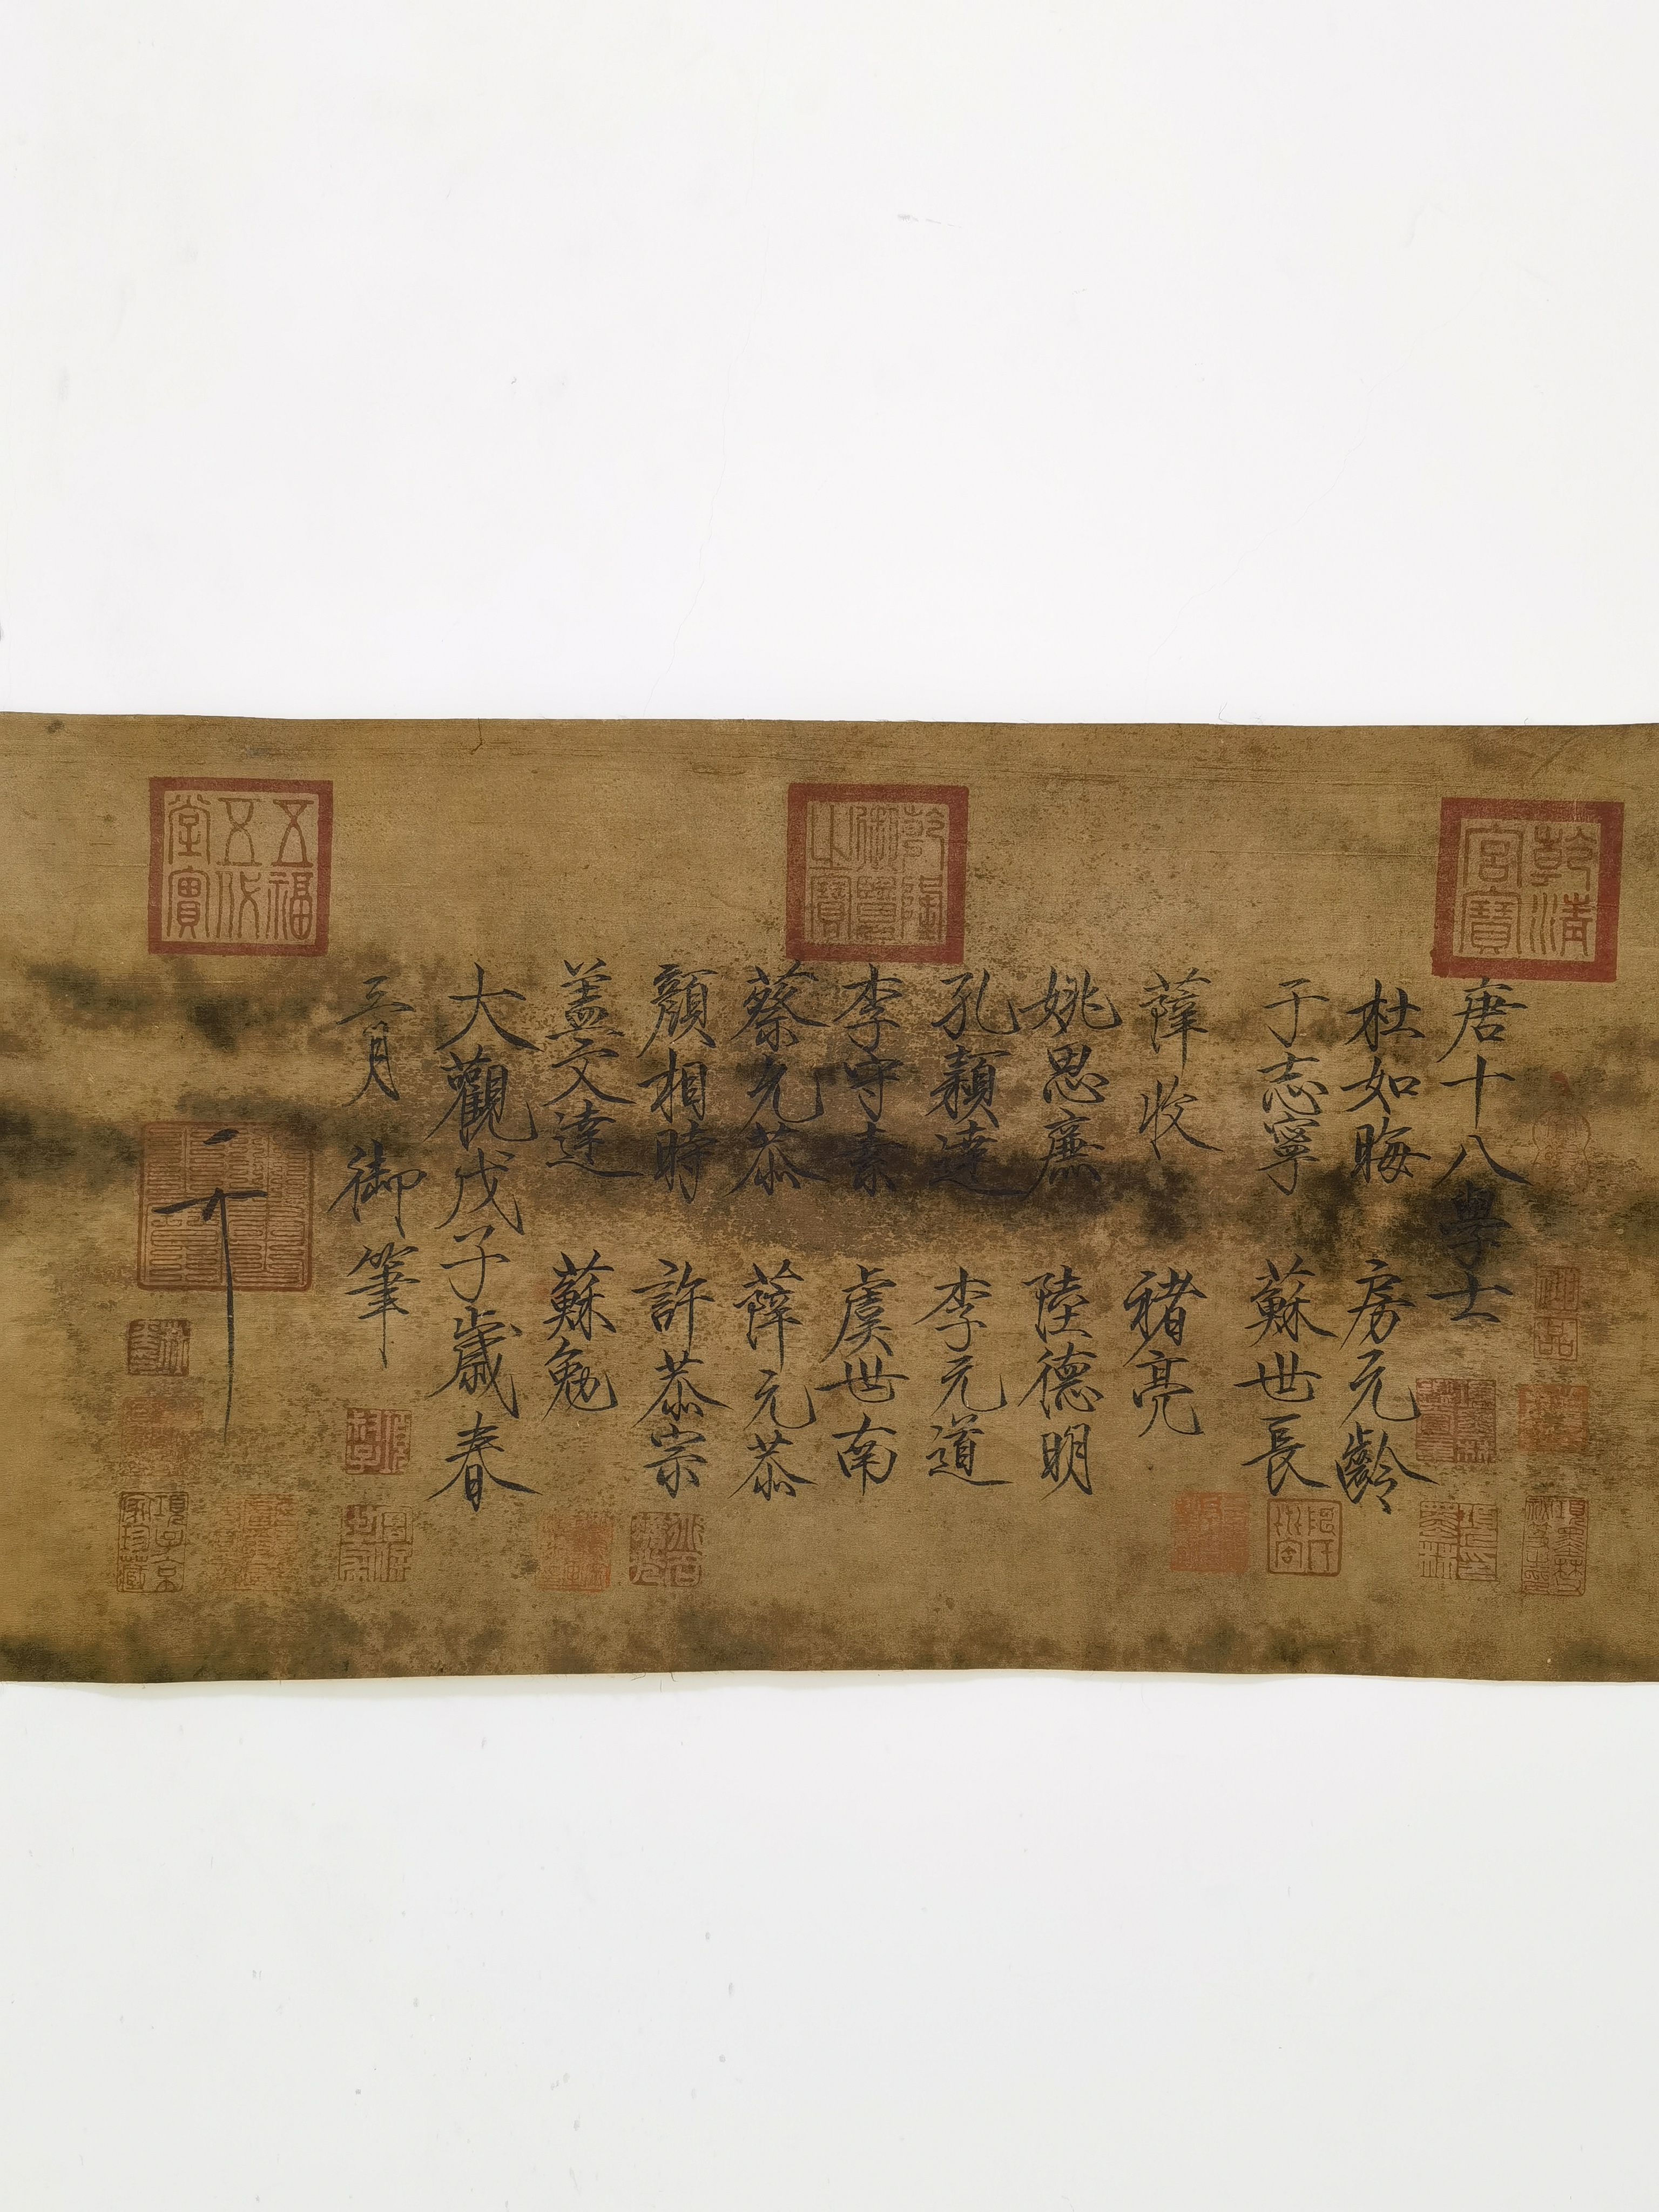 唐十八學士
杜如晦 房元齡
于志寧 蘇世長
薛收 褚亮
姚思廉 陸德明
孔穎達 李元道
李守素 虞世南
蔡允恭 薛元恭
顏相時 許恭宗
蓋文達 蘇勉
大觀戊子歲春
三月 御筆
乾清宮寶
乾隆御覽之寶
五福五代堂寶
項子京家珍藏